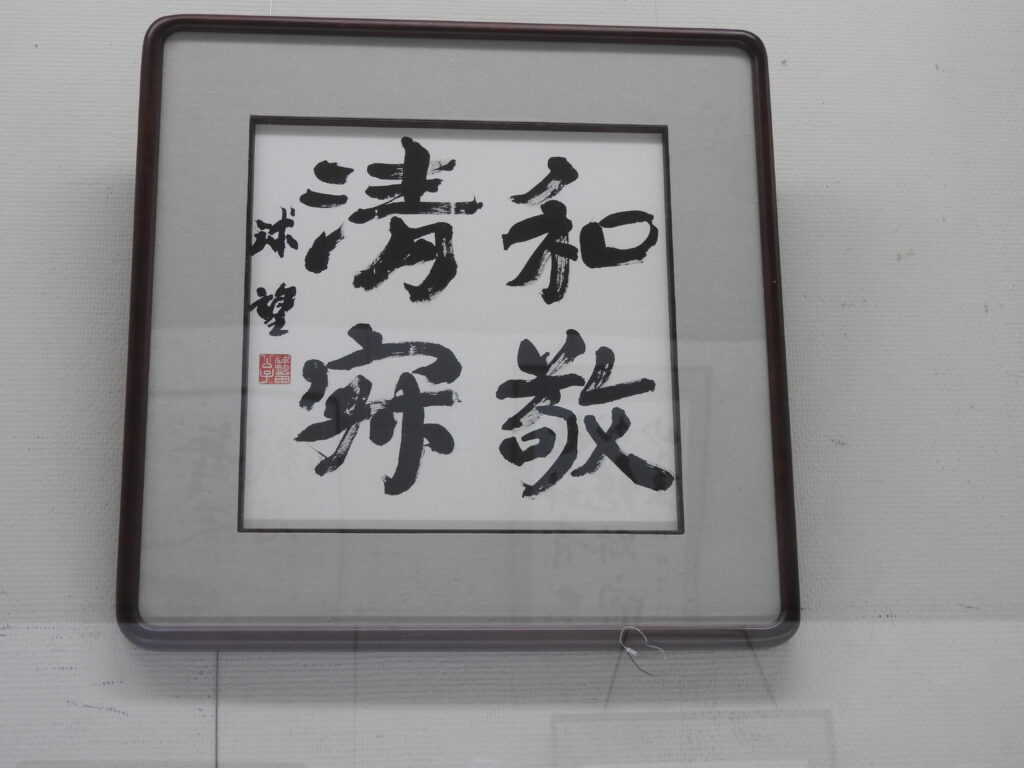 和敬
清寂
球望